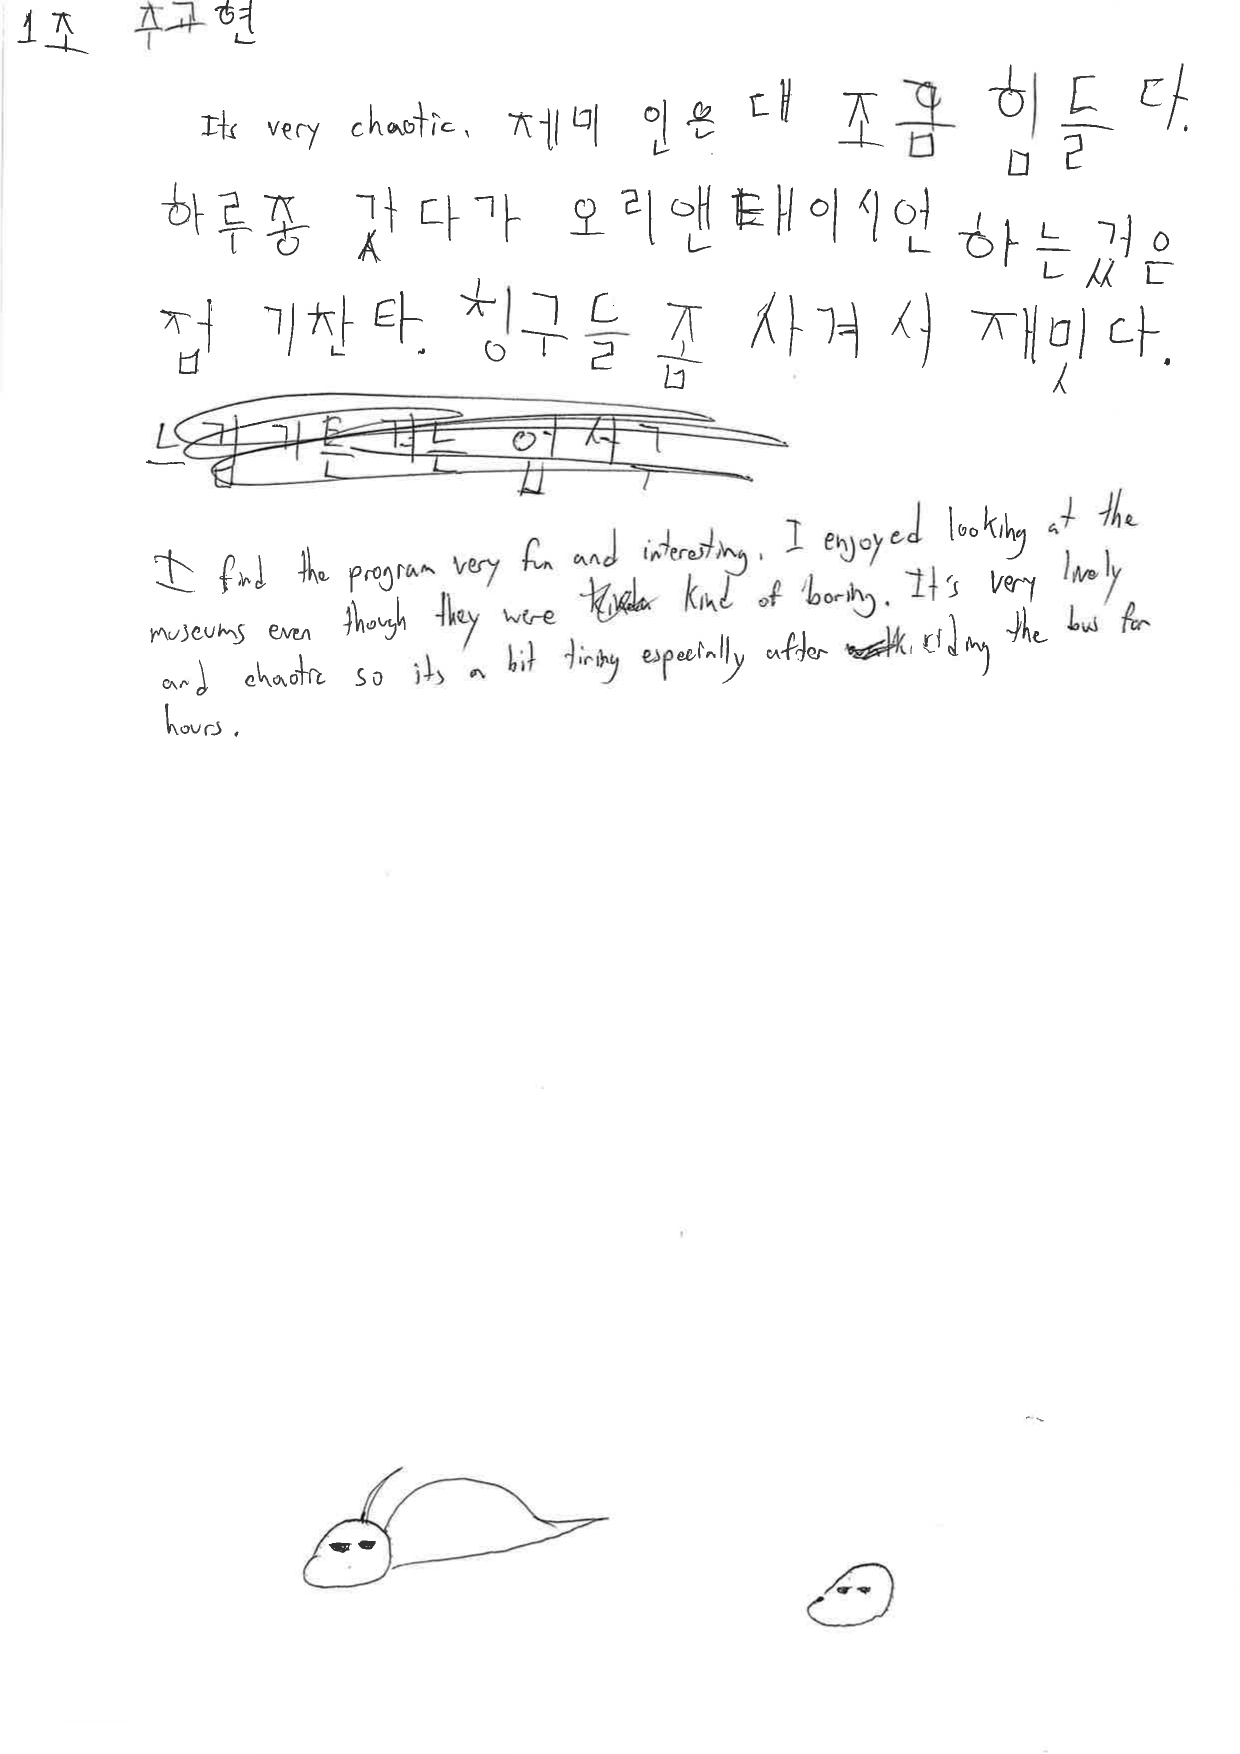 1조 주교현
Its very chaotic. 제미 인은 대 조곰 힘들다.
하루종 갔다가 오리앤테이시언 하는겄은
점 기찬타. 칭구들 좀 사겨서 재밋다.
I find the program very fun and interesting. I enjoyed looking at the
museums even though they were kind of boring. It's very lively
and chaotic so its a bit tiring especially after riding the bus for
hours.